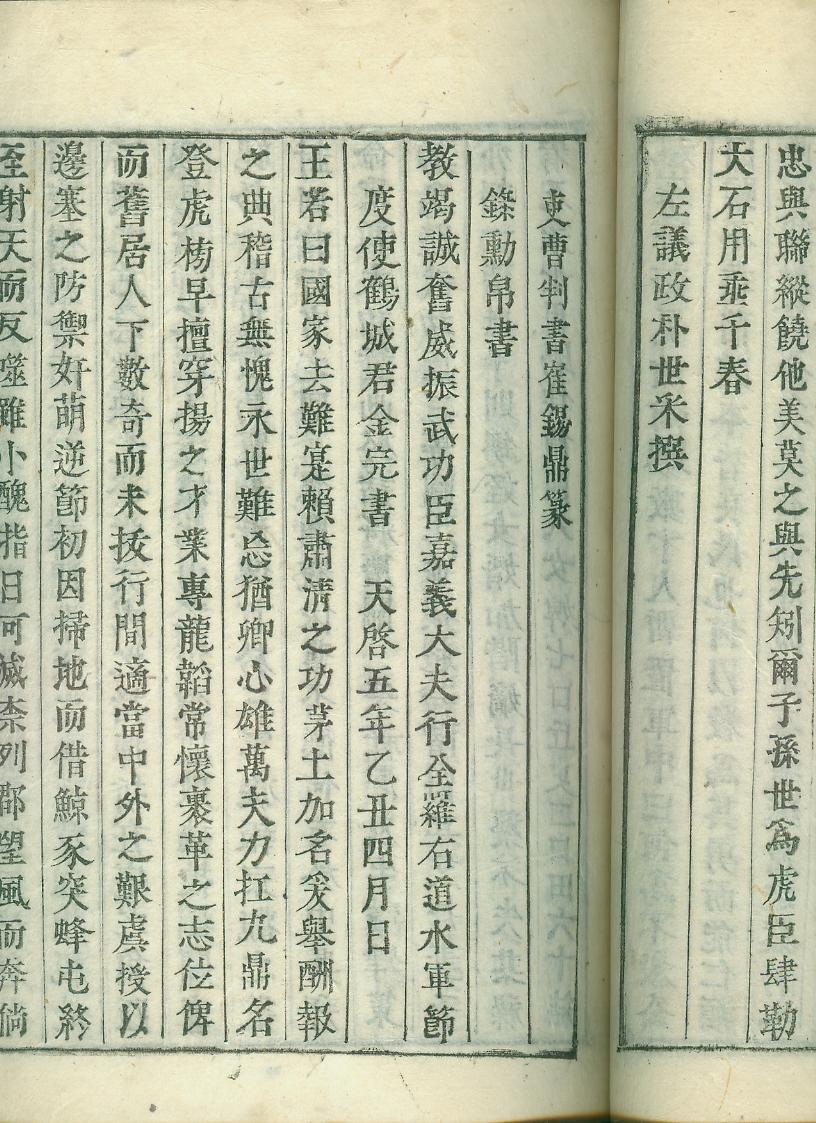 忠與聯縱饒他美莫之與先矧爾子孫世爲虎臣肆勒
大石用垂千春
左議政朴世采撰
吏曹判書崔錫鼎篆
錄勳帛書
教竭誠奮威振武功臣嘉義大夫行全羅右道水軍節
度使鶴城君金完書 天啓五年乙丑四月日
王若曰國家去難寔賴肅清之功茅土加名爰舉酬報
之典稽古無愧永世難忘猶卿心雄萬夫力扛九鼎名
登虎榜早擅穿揚之才業專龍韜常懷裹革之志位俾
而舊居人下數奇而未拔行間適當中外之艱虞授以
邊塞之防禦奸萌逆節初因掃地而借鯨豕突蜂屯終
至射天而反噬雖小醜指日可滅柰列郡望風而奔倘